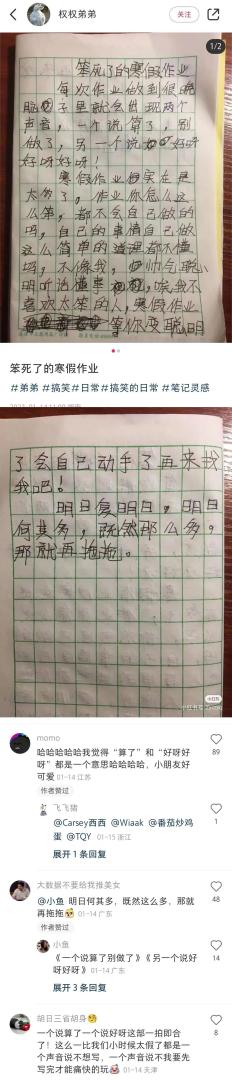 权权弟弟
关注
1/2
笨死了的寒假作业
每次作业做到很晚
脑子里就会出现两个
声音，一个说算了，别
做了，另一个说好呀
好呀好呀！
寒假作业你实在是
太笨了，作业你怎么这
么笨，都不会自己做的
吗，自己的事情自己做
这么简单的道理都不懂
吗，不像我，帅气聪
明听话懂事，唉，我不
喜欢太笨的人，寒假作业
等你变聪明
笨死了的寒假作业
#弟弟 #搞笑 #日常 #搞笑的日常 #笔记灵感
了会自己动手了再来找
我吧！
明日复明日，明日
何其多，既然那么多。
那就再拖拖。
小红书
momo
哈哈哈哈哈我觉得“算了”和“好呀好
呀”都是一个意思哈哈哈哈，小朋友好
可爱 01-14 江苏
89
作者赞过
飞飞猪
@Carsey西西 @Wiaak @番茄炒鸡
蛋 @TQY 01-15 浙江
1
展开 1 条回复
大数据不要给我推美女
@小鱼 明日何其多，既然这么多，那就
再拖拖 01-14 广东
48
作者赞过
小鱼
《一个说算了别做了》《另一个说好
呀好呀》 01-14 广东
14
展开 3 条回复
胡日三省胡身
一个说算了一个说好呀这部一拍即合
了！这么一比我们小时候太假了都是一
个声音说不想写，一个声音说不我要先
写完才能痛快的玩 01-14 天津
8